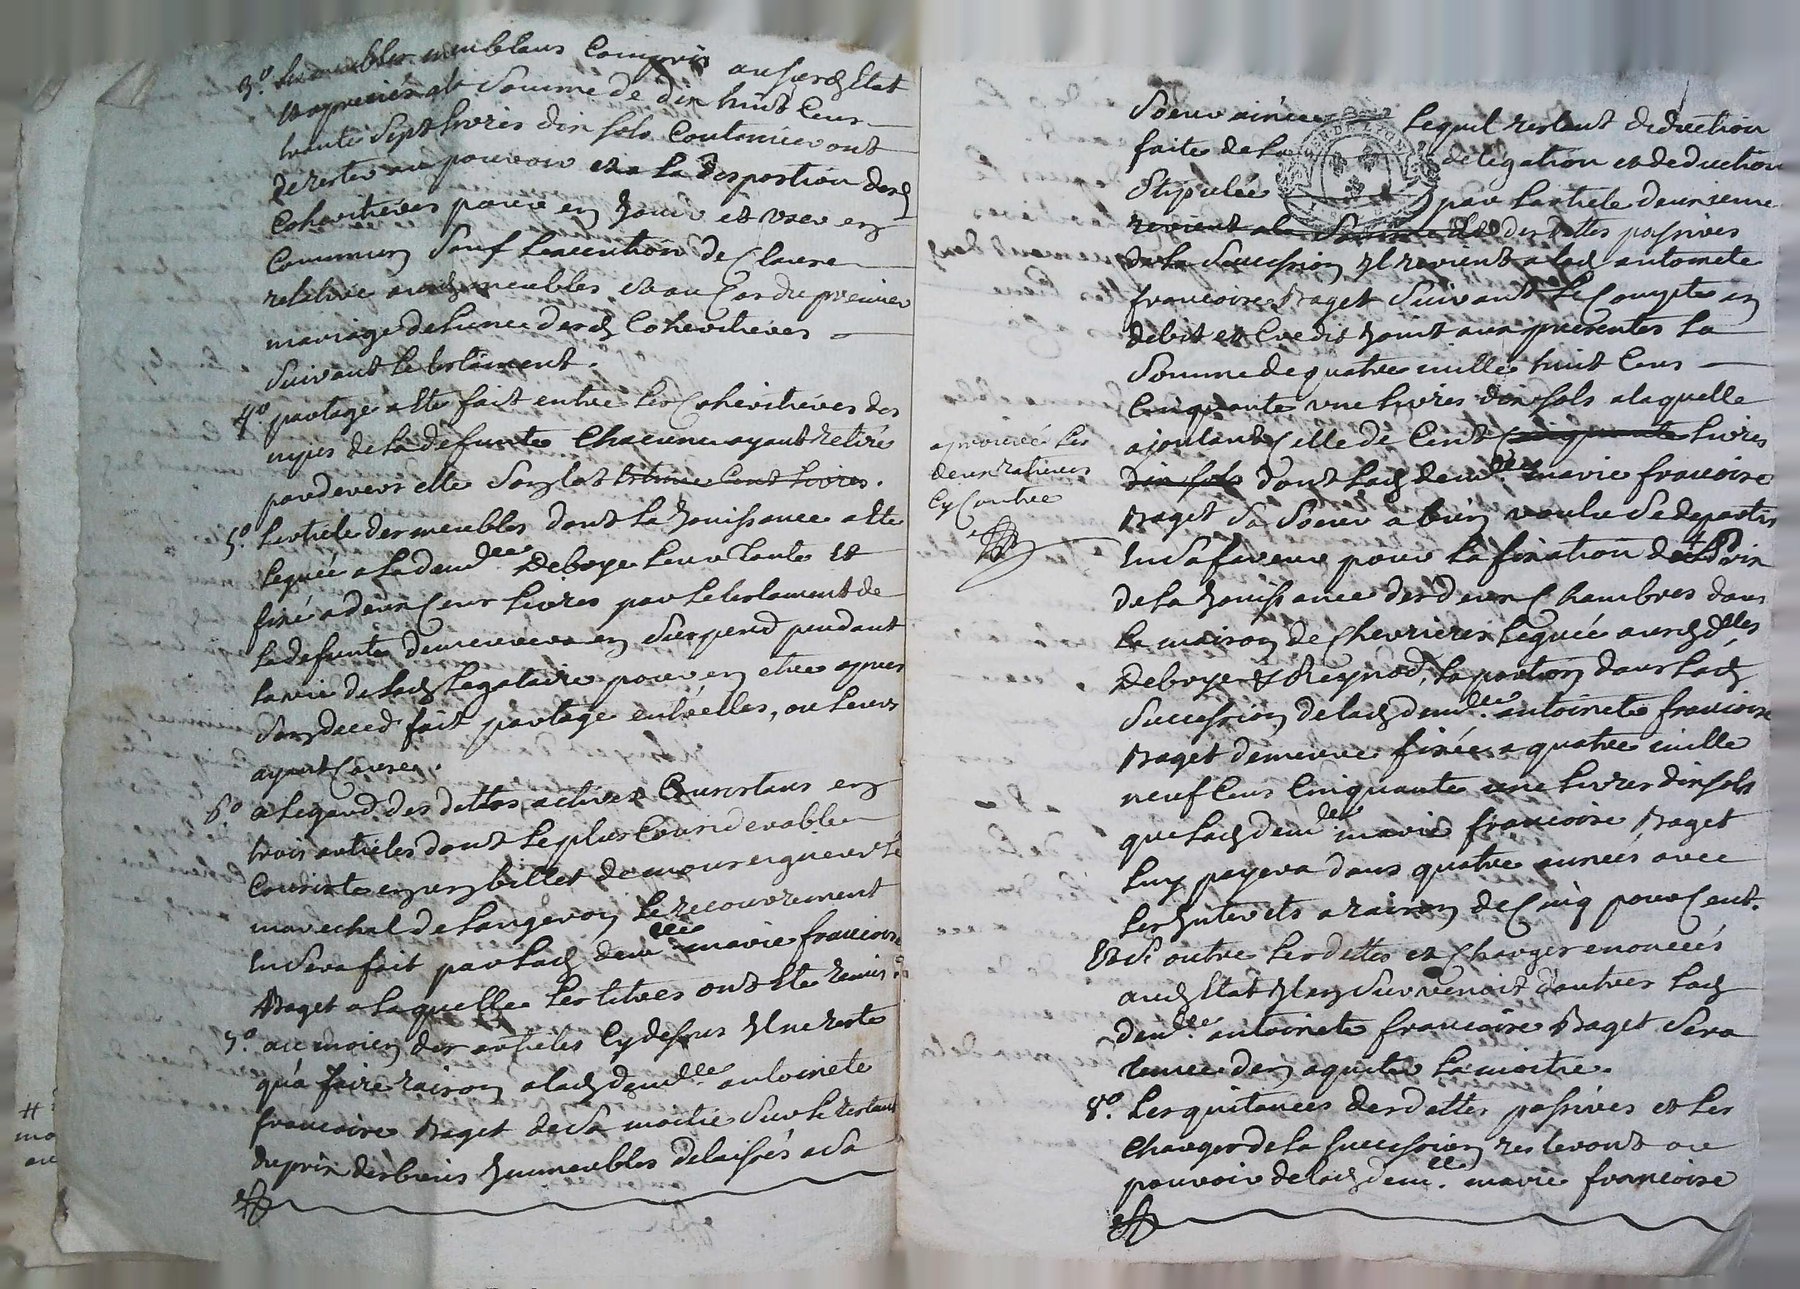 3º. les meubles meublans compris aususd Etat
et apreciés ala Somme de dix huit Cens
trente Sept livres dix sols Continueront
de rester au pouvoir et a la disposition desd
Cohéritières pour en Jouir et user en
Commun Sauf l'execution de Clause
relative auxd meubles et au Cas du premier
mariage de l'une desd Cohéritières
Suivant le testament.
4º partage a été fait entre les Cohéritières des
nipes de la défunte Chacune ayant retiré
pardevers elle Son lot
5º. l'article des meubles dont la Jouissance a été
leguée a la demlle Deboye leur tante et
fixé a deux Cens livres par le testament de
la defunte demeurera en Suspend pendant
la vie de lad legataire pour en etre apres
Son deced fait partage entre elles, ou leurs
ayant Cause.
6º a legard des dettes actives Consistans en
trois articles dont le plus Considerable
Consiste en un billet de
marechal de Langeron le recouvrement
en Sera fait par lad demlle marie francoise
Raget a laquelle les titres ont été remis.
7º. au moien des articles Cy dessus Il ne reste
qu'a faire raison a lad demlle antoinete
francoise Raget de Sa moitié Sur le restant
du prix des biens Immeubles delaissés a Sa
Soeur ainée lequel restant deduction
faite de la delegation et deduction
Stipulée par l'article deuxieme
revient a la Somme de des dettes passives
de la Succession Il revient a lad antoinete
francoise Raget Suivant le Compte en
debit et Credit Joint aux presentes la
Somme de quatre mille huit Cens
Cinquante une livres dix sols a laquelle
ajoutant Celle de Cent Cinquante livres
dix sols dont lad demlle marie francoise
Raget Sa Soeur a bien voulu Se departir
en Sa faveur pour la fixation du prix
de la Jouissance des deux Chambres dans
la maison de Chevrieres leguée auxd dlles
Deboye & Reynod, la portion dans lad
Succession de lad demlle antoinete francoise
Raget demeure fixée a quatre mille
neuf Cens Cinquante une livres dix sols
que lad demlle marie francoise Raget
luy payera dans quatre années avec
les Interets a raison de Cinq pour Cent.
Et Si outre les dettes et Charges enoncées
aud Etat Il en Survenoit d'autres lad
demlle antoinete francoise Raget Sera
tenue d'en aquiter la moitié.
8º. les quitances des dettes passives et les
Charges de la Succession resteront au
pouvoir de lad demlle. marie francoise
aprouvé les
deux ratures
Cy Contre